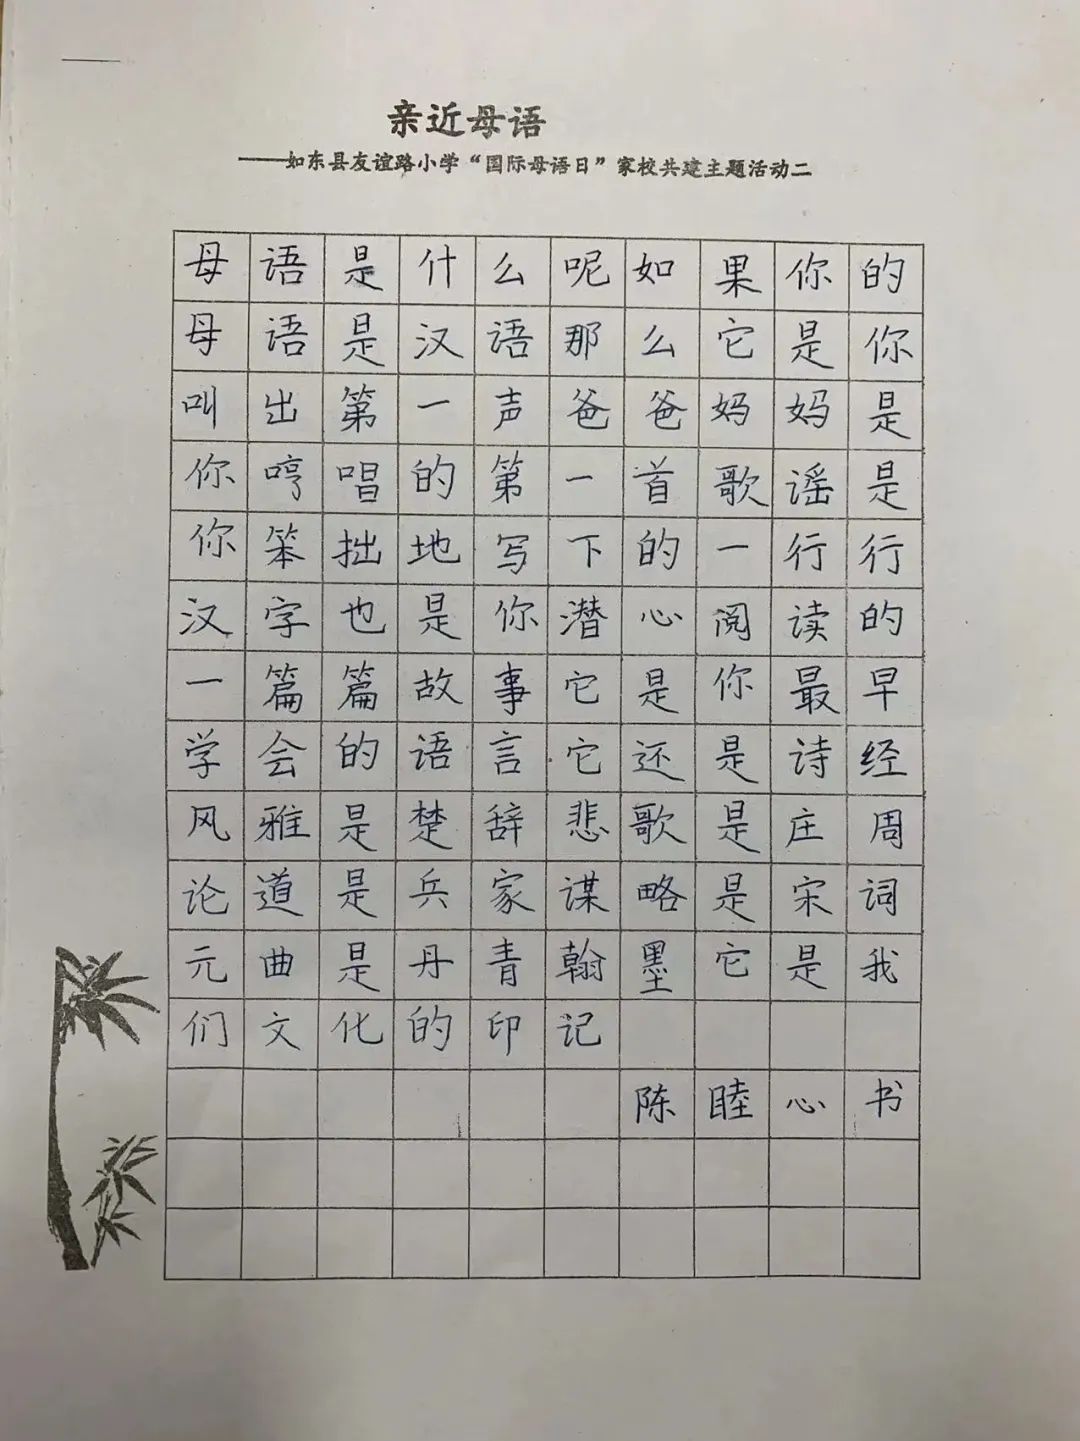 亲近母语
——如东县友谊路小学“国际母语日”家校共建主题活动二
母语是什么呢如果你的
母语是汉语那么它是你
叫出第一声爸爸妈妈是
你哼唱的第一首歌谣是
你笨拙地写下的一行行
汉字也是你潜心阅读的
一篇篇故事它是你最早
学会的语言它还是诗经
风雅是楚辞悲歌是庄周
论道是兵家谋略是宋词
元曲是丹青翰墨它是我
们文化的印记
陈睦心书